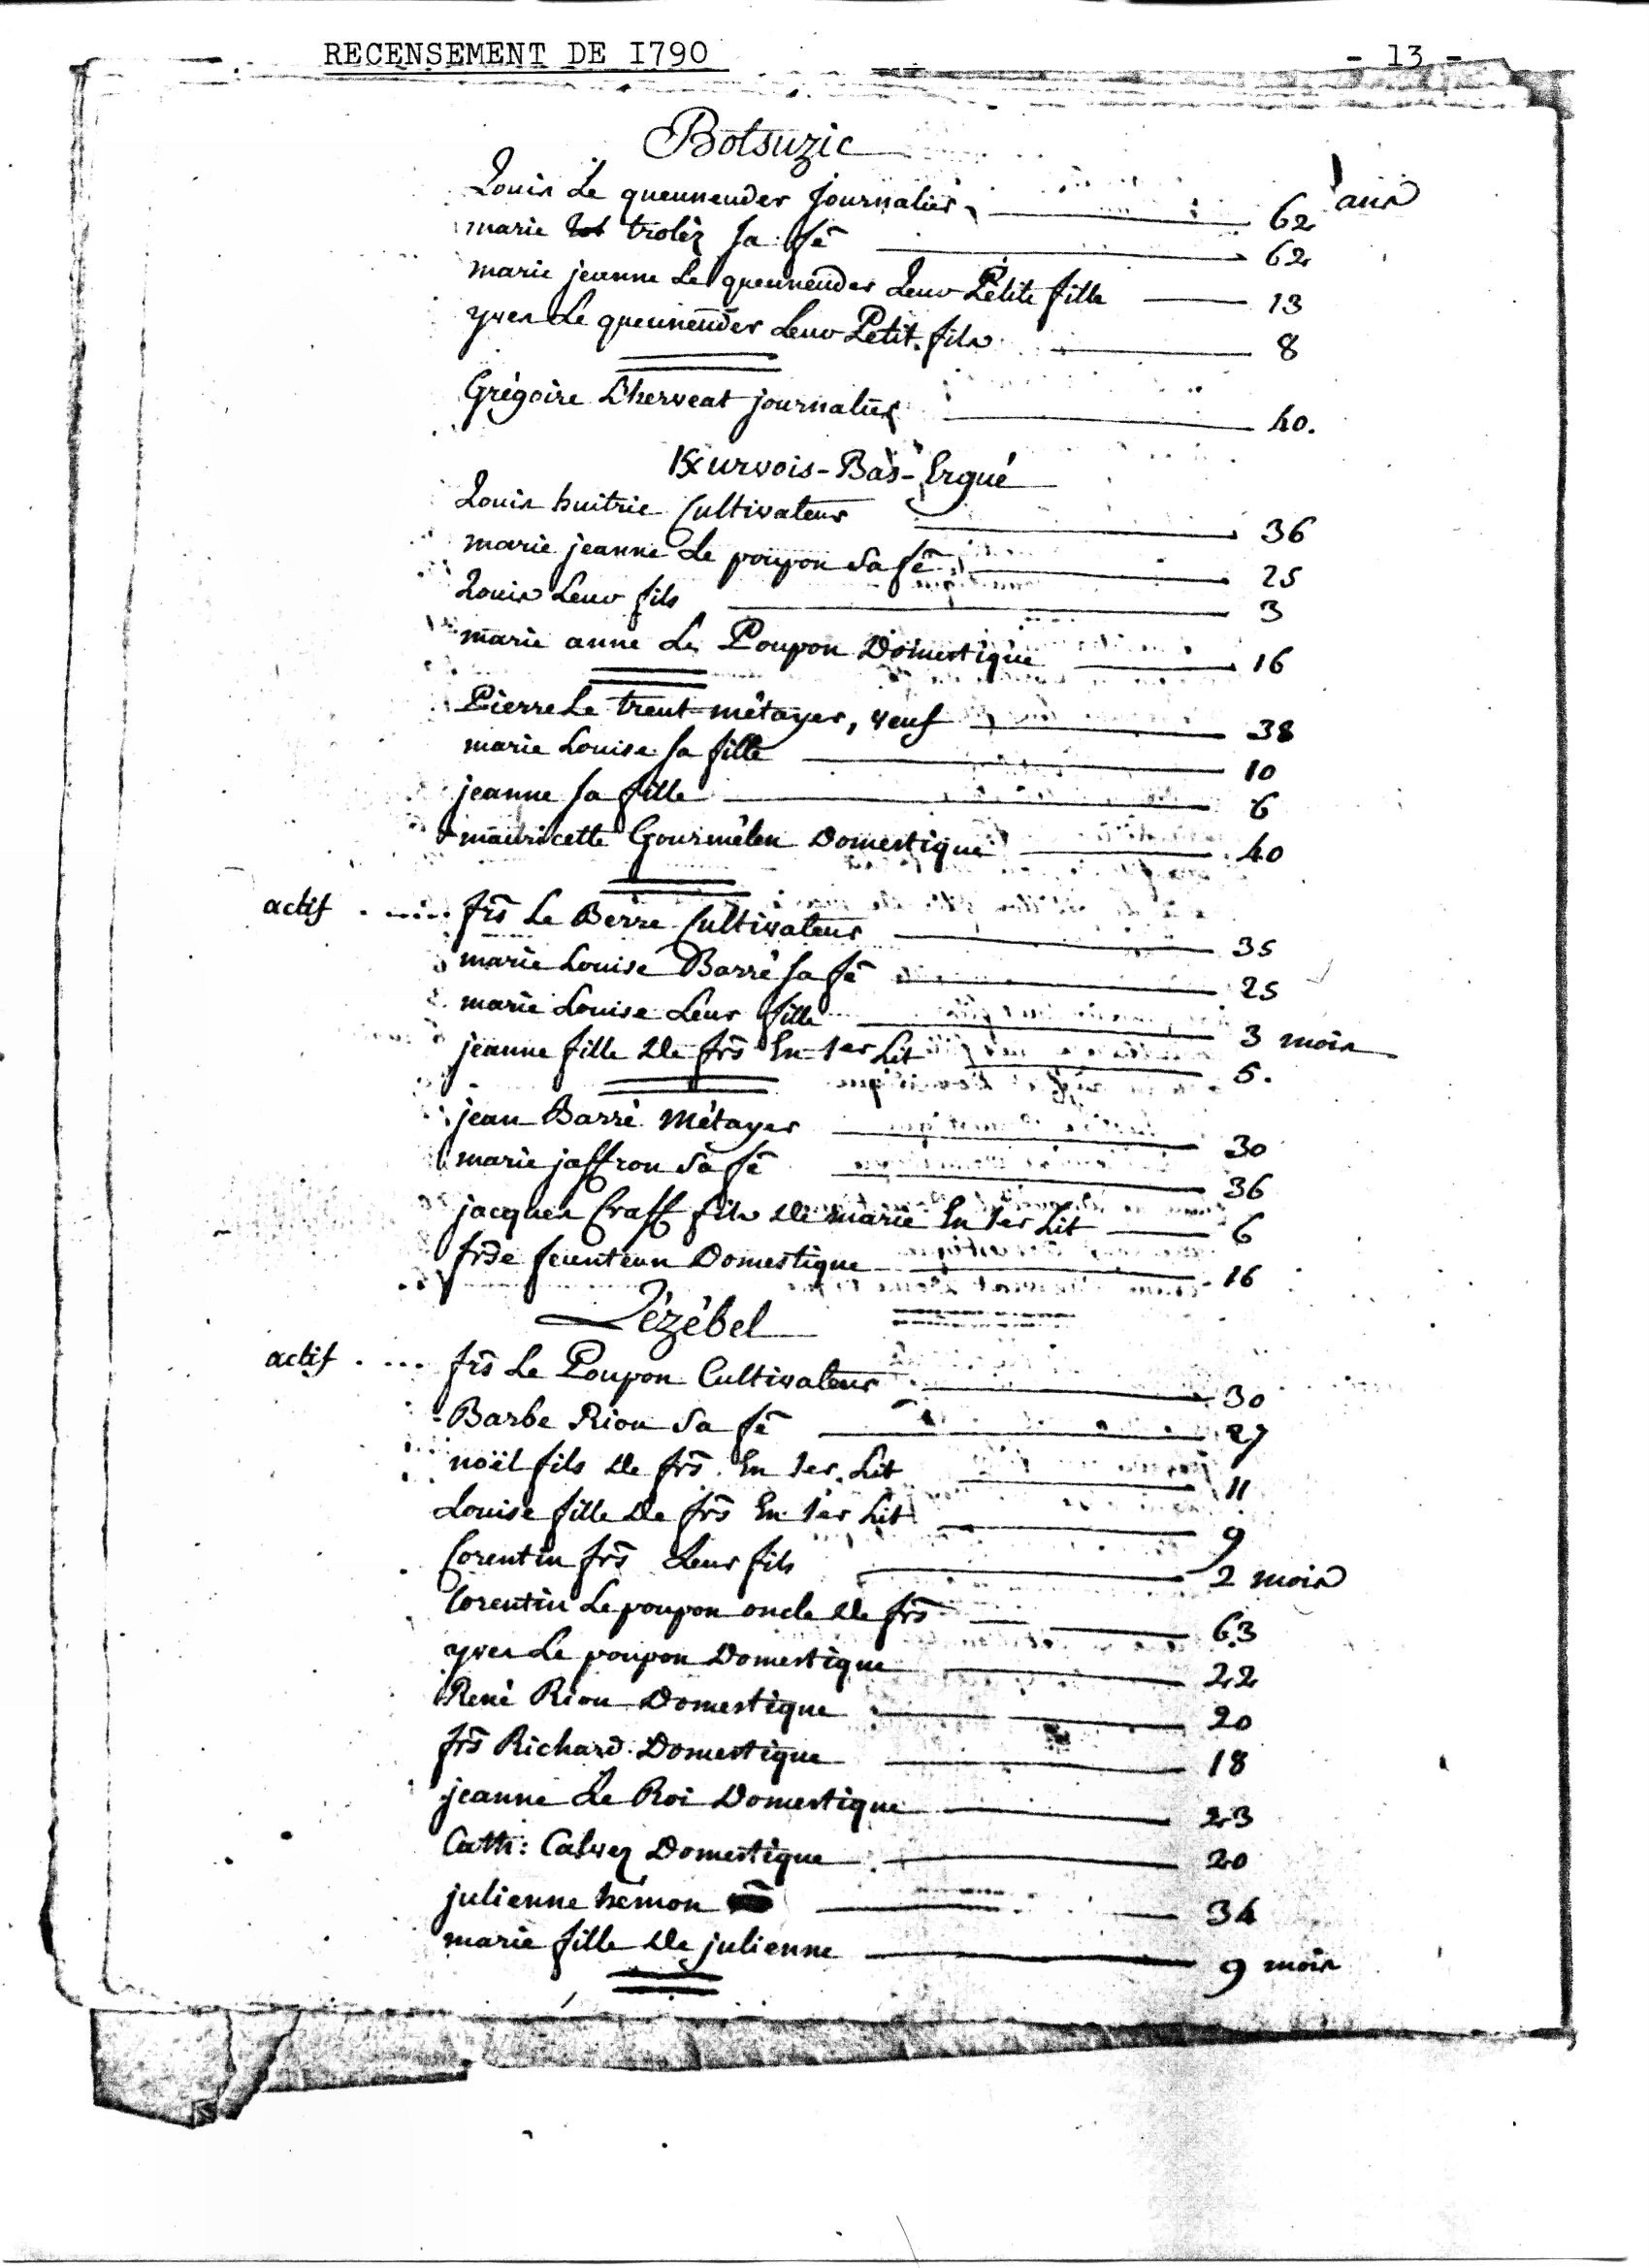 RECENSEMENT DE I790
- 13 -
Botsuzic
ans
Louis Le queunender journalier 62
marie trolez sa fē 62
marie jeanne Le queunender Leur Petite fille 13
yves Le queunender Leur Petit fils 8
Grégoire Lherveat journalier 40.
Kurvois-Bas-Ergué
Louis huitric Cultivateur 36
marie jeanne Le poupon Sa fē 25
Louis Leur fils 3
marie anne Le Poupon Domestique 16
Pierre Le treut métayer, veuf 38
marie Louise sa fille 10
jeanne sa fille 6
mauricette Gourmelen Domestique 40
actif .... frs̄ Le Berre Cultivateur 35
marie Louise Barré sa fē 25
marie Louise Leur fille 3 mois
jeanne fille De frs̄ En 1er Lit 5.
jean Barré Métayer 30
marie jaffrou Sa fē 36
jacques Craff fils De marie En 1er Lit 6
frse feunteun Domestique 16
Lézébel
actif .... frs̄ Le Poupon Cultivateur 30
Barbe Riou Sa fē 27
noël fils De frs̄ En 1er Lit 11
Louise fille De frs̄ En 1er Lit 9
Corentin frs̄ Leur fils 2 mois
Corentin Le poupon oncle De frs̄ 63
yves Le poupon Domestique 22
René Riou Domestique 20
frs̄ Richard Domestique 18
jeanne Le Roi Domestique 23
Cath: Calvez Domestique 20
julienne hémon 34
marie fille De julienne 9 mois